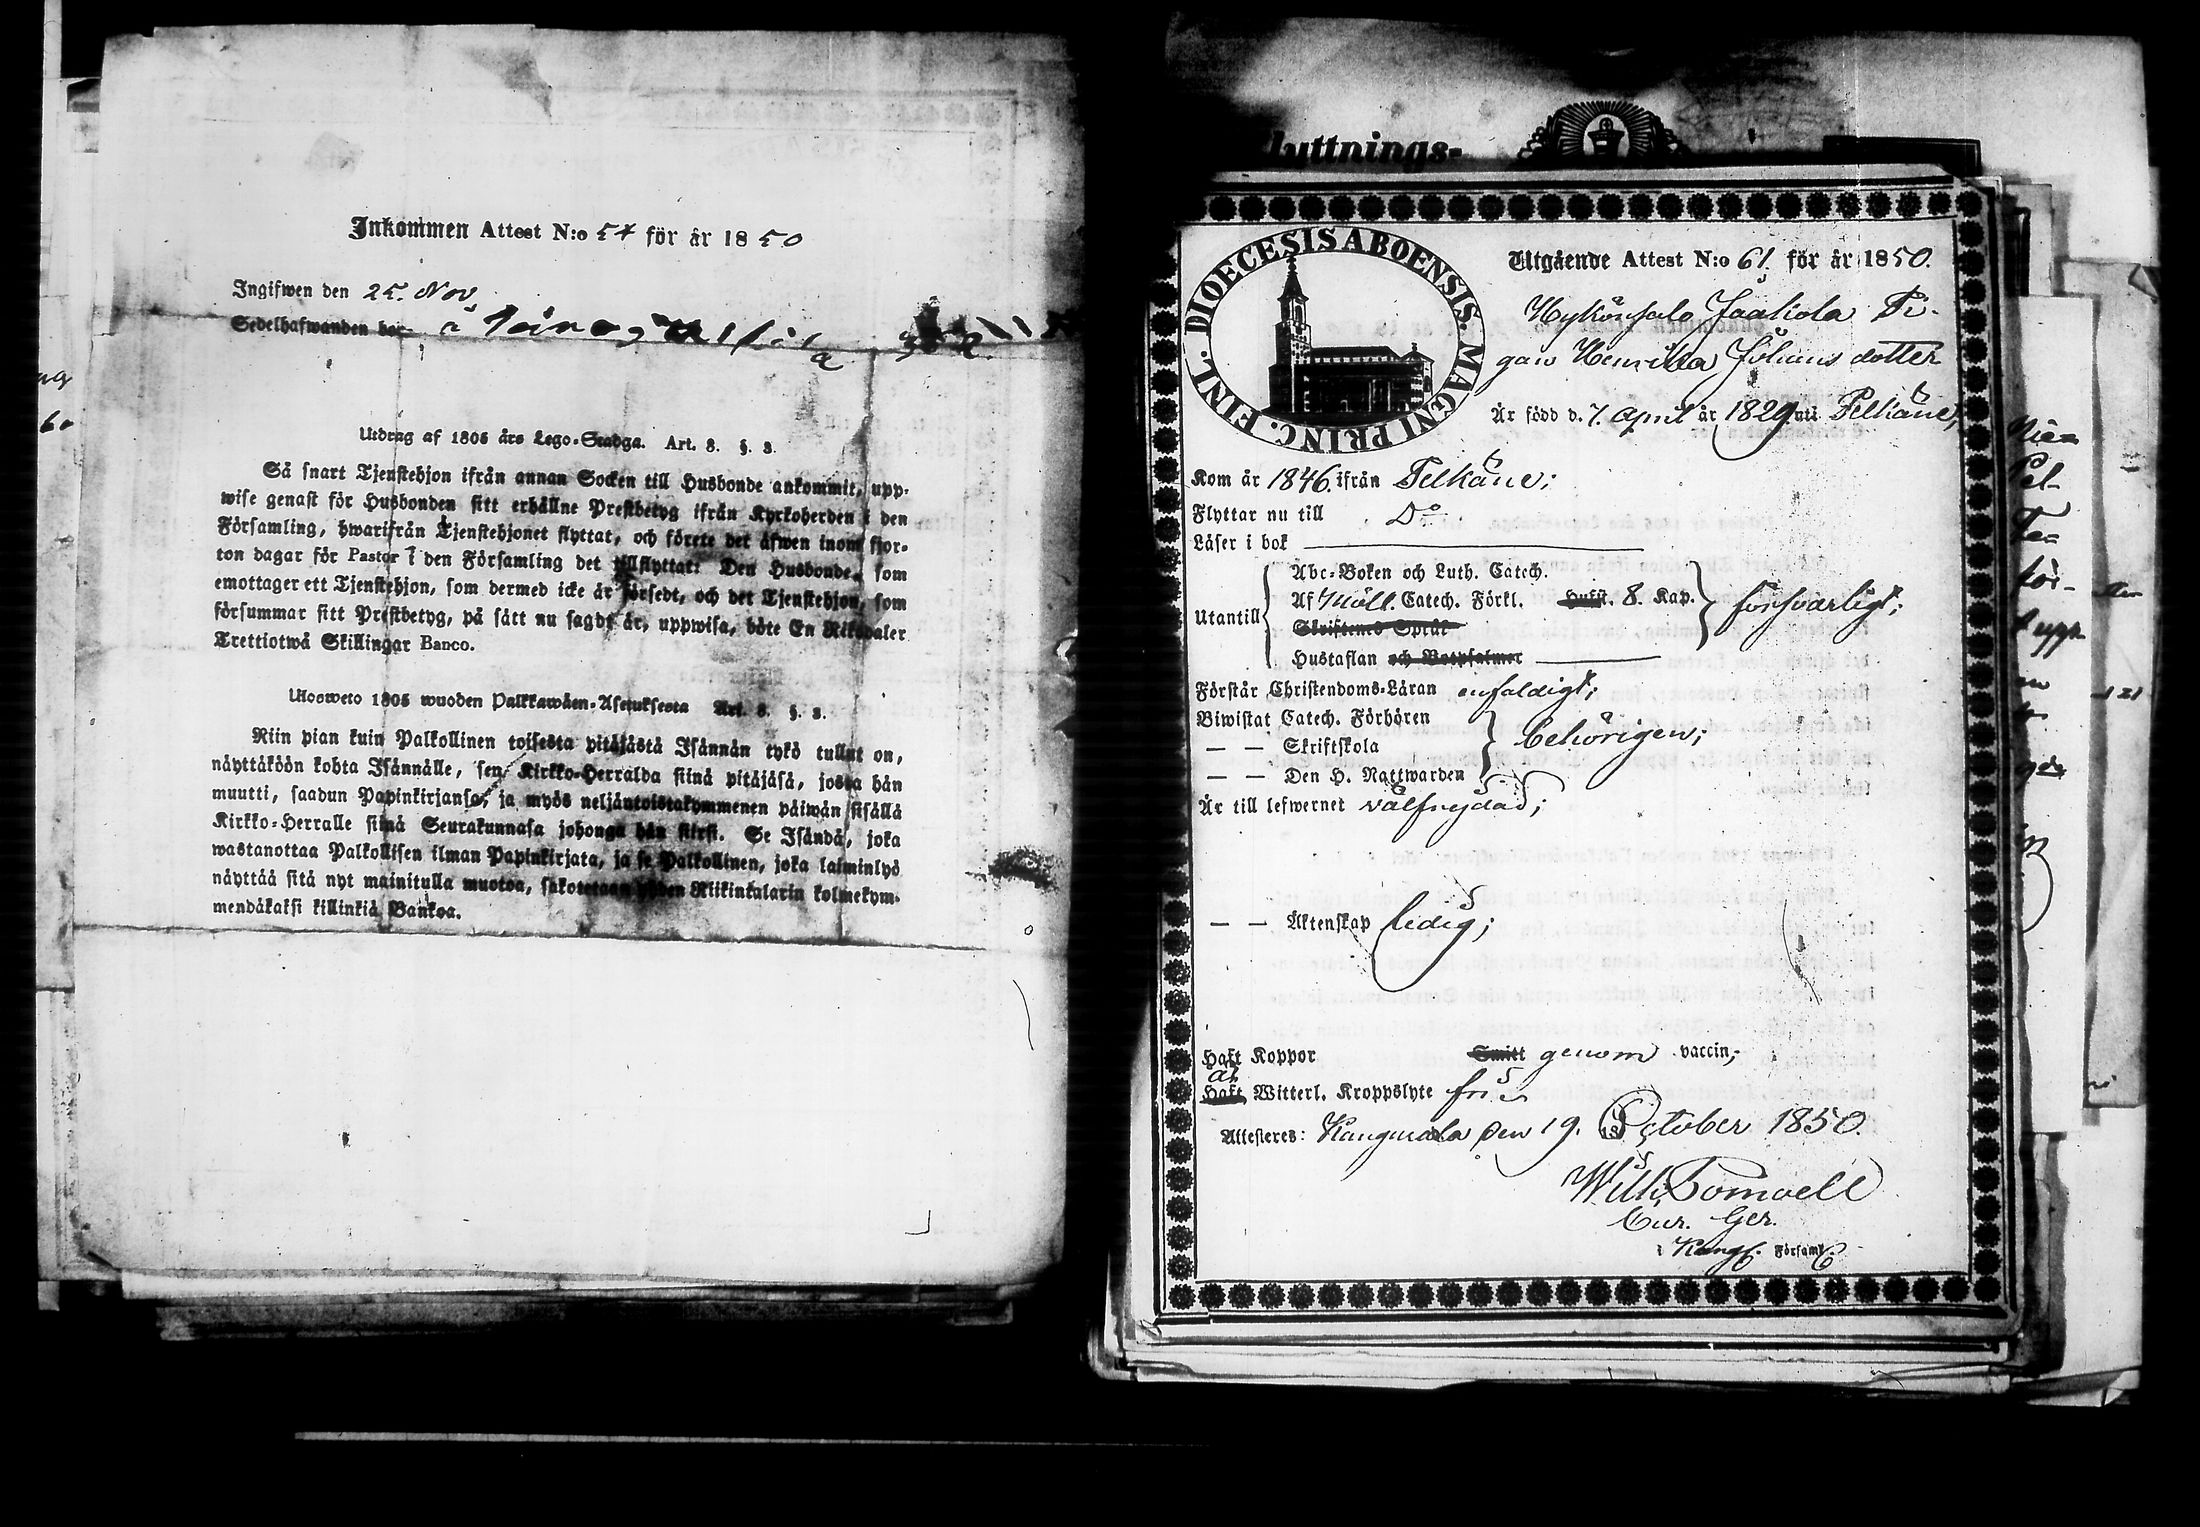 Inkommen Attest N:o 54 för år 1850
Ingifwen den 25. Nov.
Sedelhafwanden bor å
Utdrag af 1805 års Lego-Stadga. Art. 8. §. 3.
Så snart Tjenstehjon ifrån annan Socken till Husbonde ankommit, upp-
wise genast för Husbonden sitt erhållne Prestbetyg ifrån Kyrkoherden i den
Församling, hwarifrån Tjenstehjonet flyttat, och förete det äfwen inom fjor-
ton dagar för Pastor i den Församling det tillflyttat: Den Husbonde, som
emottager ett Tjenstehjon, som dermed icke är försedt, och det Tjenstehjon, som
försummar sitt Prestbetyg, på sätt nu sagdt är, uppwisa, böte En Riksdaler
Trettiotwå Skillingar Banco.
Ulosweto 1805 wuoden Palkkawäen-Asetuksesta Art. 8. §. 3.
Niin pian kuin Palkollinen toisesta pitäjästä Isännän tykö tullut on,
näyttäköön kohta Isännälle, sen Kirkko-Herralda siinä pitäjäsä, josta hän
muutti, saadun Papinkirjansa, ja myös neljäntoistakymmenen päiwän sisällä
Kirkko-Herralle siinä Seurakunnasa johonga hän siirsi. Se Isändä, joka
wastanottaa Palkollisen ilman Papinkirjata, ja se Palkollinen, joka laiminlyö
näyttää sitä nyt mainitulla muotoa, sakotetaan yhden Riikintalarin kolmekym-
mendäkaksi killinkiä Bankoa.
luttnings-
DIOECESIS ABOENSIS. MAGNI PRINC. FINL.
Utgående Attest N:o 61. för år 1850.
Jaakola Pi-
gan Henrika Johans dotter
Är född d. 7. April år 1829. uti Pelkäne,
Kom år 1846. ifrån Pelkäne;
Flyttar nu till Do
Läser i bok
Abc-Boken och Luth. Catech.
Af Möll. Catech. Förkl. Hufst. 8. Kap.
Utantill
försvarligt;
Skriftenes Språk
Hustaflan och Botpsalmer
Förstår Christendoms-Läran enfaldigt;
Biwistat Catech. Förhören
— — Skriftskola
behörigen;
— — Den H. Nattwarden
Är till lefwernet välfrejdad;
— — Äktenskap ledig;
Haft Koppor Smitt genom vaccin;
är
Haft Witterl. Kroppslyte fri
Attesteres: Kangasala den 19. October 1850.
Cur. Ger.
i Kangl. Församl.